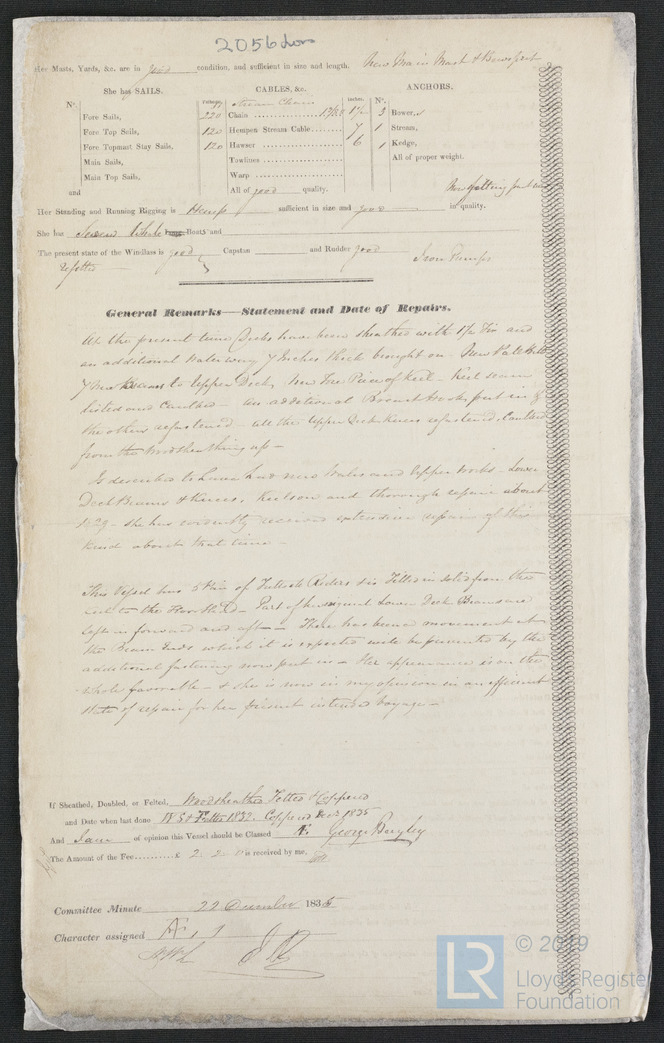 2056 Lon
Her Masts, Yards, &c. are in good condition, and sufficient in size and length. New Main Mast & Bowsprit
She has SAILS. CABLES, &c. ANCHORS.
No. Fathoms. Inches. No.
Stream Chain
Fore Sails, 220 Chain 1 7/16 3 Bowers,
Fore Top Sails, 120 Hempen Stream Cable 7 1 Stream,
Fore Topmast Stay Sails, 120 Hawser 6 1 Kedge,
Main Sails, Towlines All of proper weight.
Main Top Sails, Warp
and All of good quality.
Her Standing and Running Rigging is Hemp sufficient in size and good in quality.
She has Boats and
The present state of the Windlass is good Capstan and Rudder good Iron Pumps
General Remarks—Statement and Date of Repairs.
At the present time Decks have been sheathed with 1 1/2 Fir and
an additional Waterway 7 Inches thick brought on - New
7 New Beams to Upper Deck, New Fore Piece of Keel - Keel seam
listed and Caulked - An additional Breast Hook put in &
the others refastened - All the Upper Deck Knees refastened, Caulked
from the Woodsheathing up -
Is described to have had new Wales and Upper Works - Lower
Deck Beams & Knees, Keelson and thorough repair about
1829 - She has evidently received extensive repairs of this
kind about that time -
This Vessel has of Riders & is Filled in solid from the
Keel to the Floor Head - Part of her original Lower Deck Beams are
left in forward and aft - There has been a movement at
the Beam Ends which it is expected will be prevented by the
additional fastening now put in - Her appearance is on the
whole favorable - & she is now in my opinion in an efficient
state of repair for her present intended Voyage -
If Sheathed, Doubled, or Felted, Woodsheathed Felted & Coppered
and Date when last done W S & Felted 1832. Coppered Decr 1835
And I am of opinion this Vessel should be Classed George Bayley
The Amount of the Fee £ 2 . 2 . 0 is received by me,
Committee Minute 22 December 1835
Character assigned Æ, 1
LR
© 2019
Lloyd's Register
Foundation